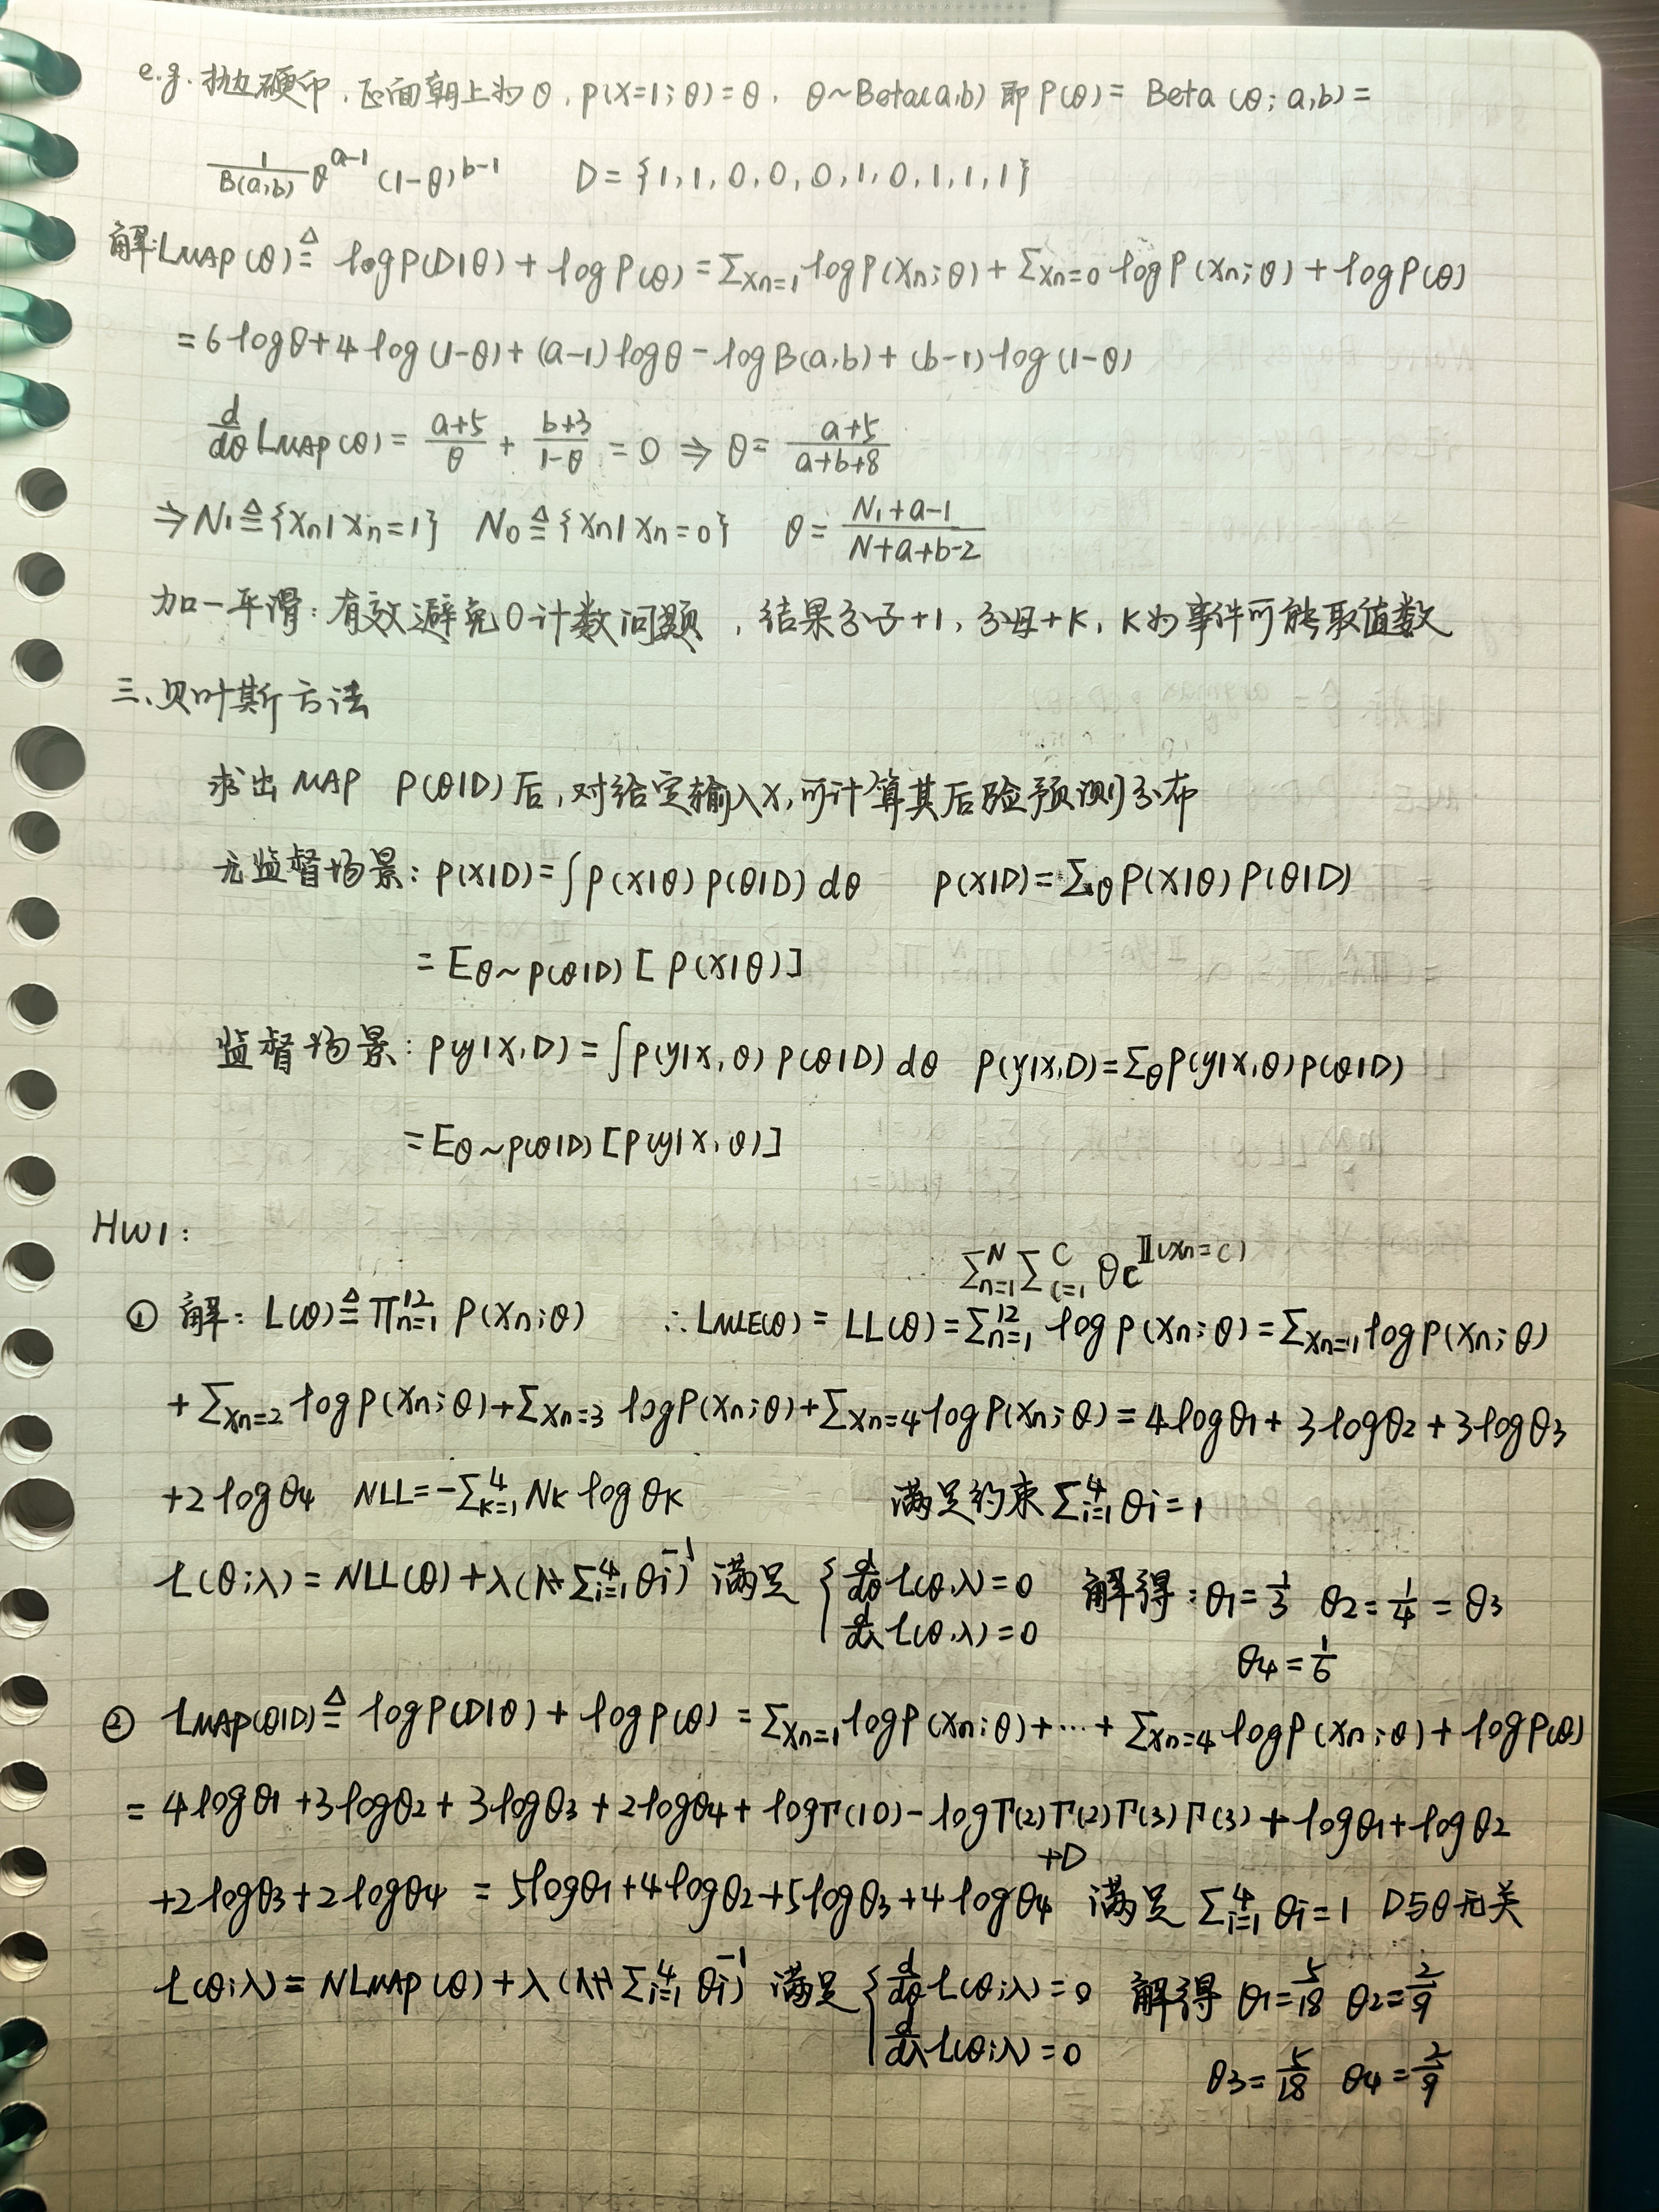 e.g. 抛硬币，正面朝上为θ，p(x=1;θ)=θ，θ~Beta(a,b) 即 P(θ)= Beta (θ; a,b)=
1/B(a,b) θ^{a-1} (1-θ)^{b-1}  D={1,1,0,0,0,1,0,1,1,1}
解: L_MAP(θ) ≜ log P(D|θ) + log P(θ) = Σ_{Xn=1} log P(Xn;θ) + Σ_{Xn=0} log P(Xn;θ) + log P(θ)
= 6 log θ + 4 log (1-θ) + (a-1) log θ - log B(a,b) + (b-1) log (1-θ)
d/dθ L_MAP(θ) = (a+5)/θ + (b+3)/(1-θ) = 0 ⇒ θ = (a+5)/(a+b+8)
⇒ N₁ ≜ {Xn | Xn=1}  N₀ ≜ {Xn | Xn=0}  θ = (N₁+a-1)/(N+a+b-2)
加一平滑：有效避免0计数问题，结果分子+1，分母+K，K为事件可能取值数
三、贝叶斯方法
求出 MAP P(θ|D) 后，对给定输入X，可计算其后验预测分布
无监督场景：P(X|D)=∫P(X|θ) P(θ|D) dθ  P(X|D)=Σ_θ P(X|θ) P(θ|D)
= E_{θ~P(θ|D)} [P(X|θ)]
监督场景：P(y|X,D)=∫P(y|X,θ) P(θ|D) dθ  P(y|X,D)=Σ_θ P(y|X,θ) P(θ|D)
= E_{θ~P(θ|D)} [P(y|X,θ)]
HW1:
Σ_{n=1}^N Σ_{c=1}^C θc^{𝕀(Xn=c)}
① 解：L(θ) ≜ Π_{n=1}^{12} P(Xn;θ)  ∴ L_MLE(θ) = LL(θ) = Σ_{n=1}^{12} log P(Xn;θ) = Σ_{Xn=1} log P(Xn;θ)
+ Σ_{Xn=2} log P(Xn;θ) + Σ_{Xn=3} log P(Xn;θ) + Σ_{Xn=4} log P(Xn;θ) = 4 log θ₁ + 3 log θ₂ + 3 log θ₃
+ 2 log θ₄  NLL = -Σ_{K=1}^4 N_K log θ_K  满足约束 Σ_{i=1}^4 θi = 1
L(θ;λ) = NLL(θ) + λ(Σ_{i=1}^4 θi - 1) 满足 { d/dθ L(θ,λ)=0  解得：θ₁=1/3  θ₂=1/4=θ₃
d/dλ L(θ,λ)=0  θ₄=1/6
② L_MAP(θ|D) ≜ log P(D|θ) + log P(θ) = Σ_{Xn=1} log P(Xn;θ) + ... + Σ_{Xn=4} log P(Xn;θ) + log P(θ)
= 4 log θ₁ + 3 log θ₂ + 3 log θ₃ + 2 log θ₄ + log Γ(10) - log Γ(2) Γ(2) Γ(3) Γ(3) + log θ₁ + log θ₂
+ 2 log θ₃ + 2 log θ₄ = 5 log θ₁ + 4 log θ₂ + 5 log θ₃ + 4 log θ₄ + D  满足 Σ_{i=1}^4 θi = 1  D与θ无关
L(θ;λ) = NL_MAP(θ) + λ(Σ_{i=1}^4 θi - 1) 满足 { d/dθ L(θ;λ)=0  解得 θ₁=5/18  θ₂=2/9
d/dλ L(θ;λ)=0  θ₃=5/18  θ₄=2/9